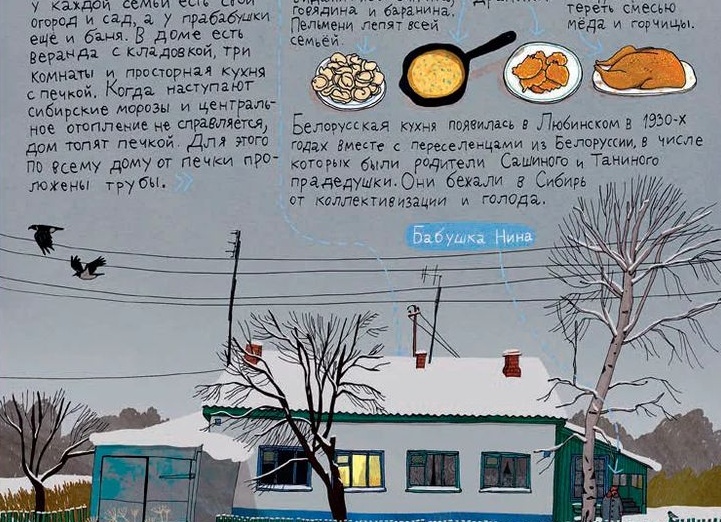 у каждой семьи есть свой
огород и сад, а у прабабушки
ещё и баня. В доме есть
веранда с кладовкой, три
комнаты и просторная кухня
с печкой. Когда наступают
сибирские морозы и централь-
ное отопление не справляется,
дом топят печкой. Для этого
по всему дому от печки про-
ложены трубы.
говядина и баранина.
Пельмени лепят всей
семьёй.
тереть смесью
мёда и горчицы.
Белорусская кухня появилась в Любинском в 1930-х
годах вместе с переселенцами из Белоруссии, в числе
которых были родители Сашиного и Таниного
прадедушки. Они бежали в Сибирь
от коллективизации и голода.
Бабушка Нина